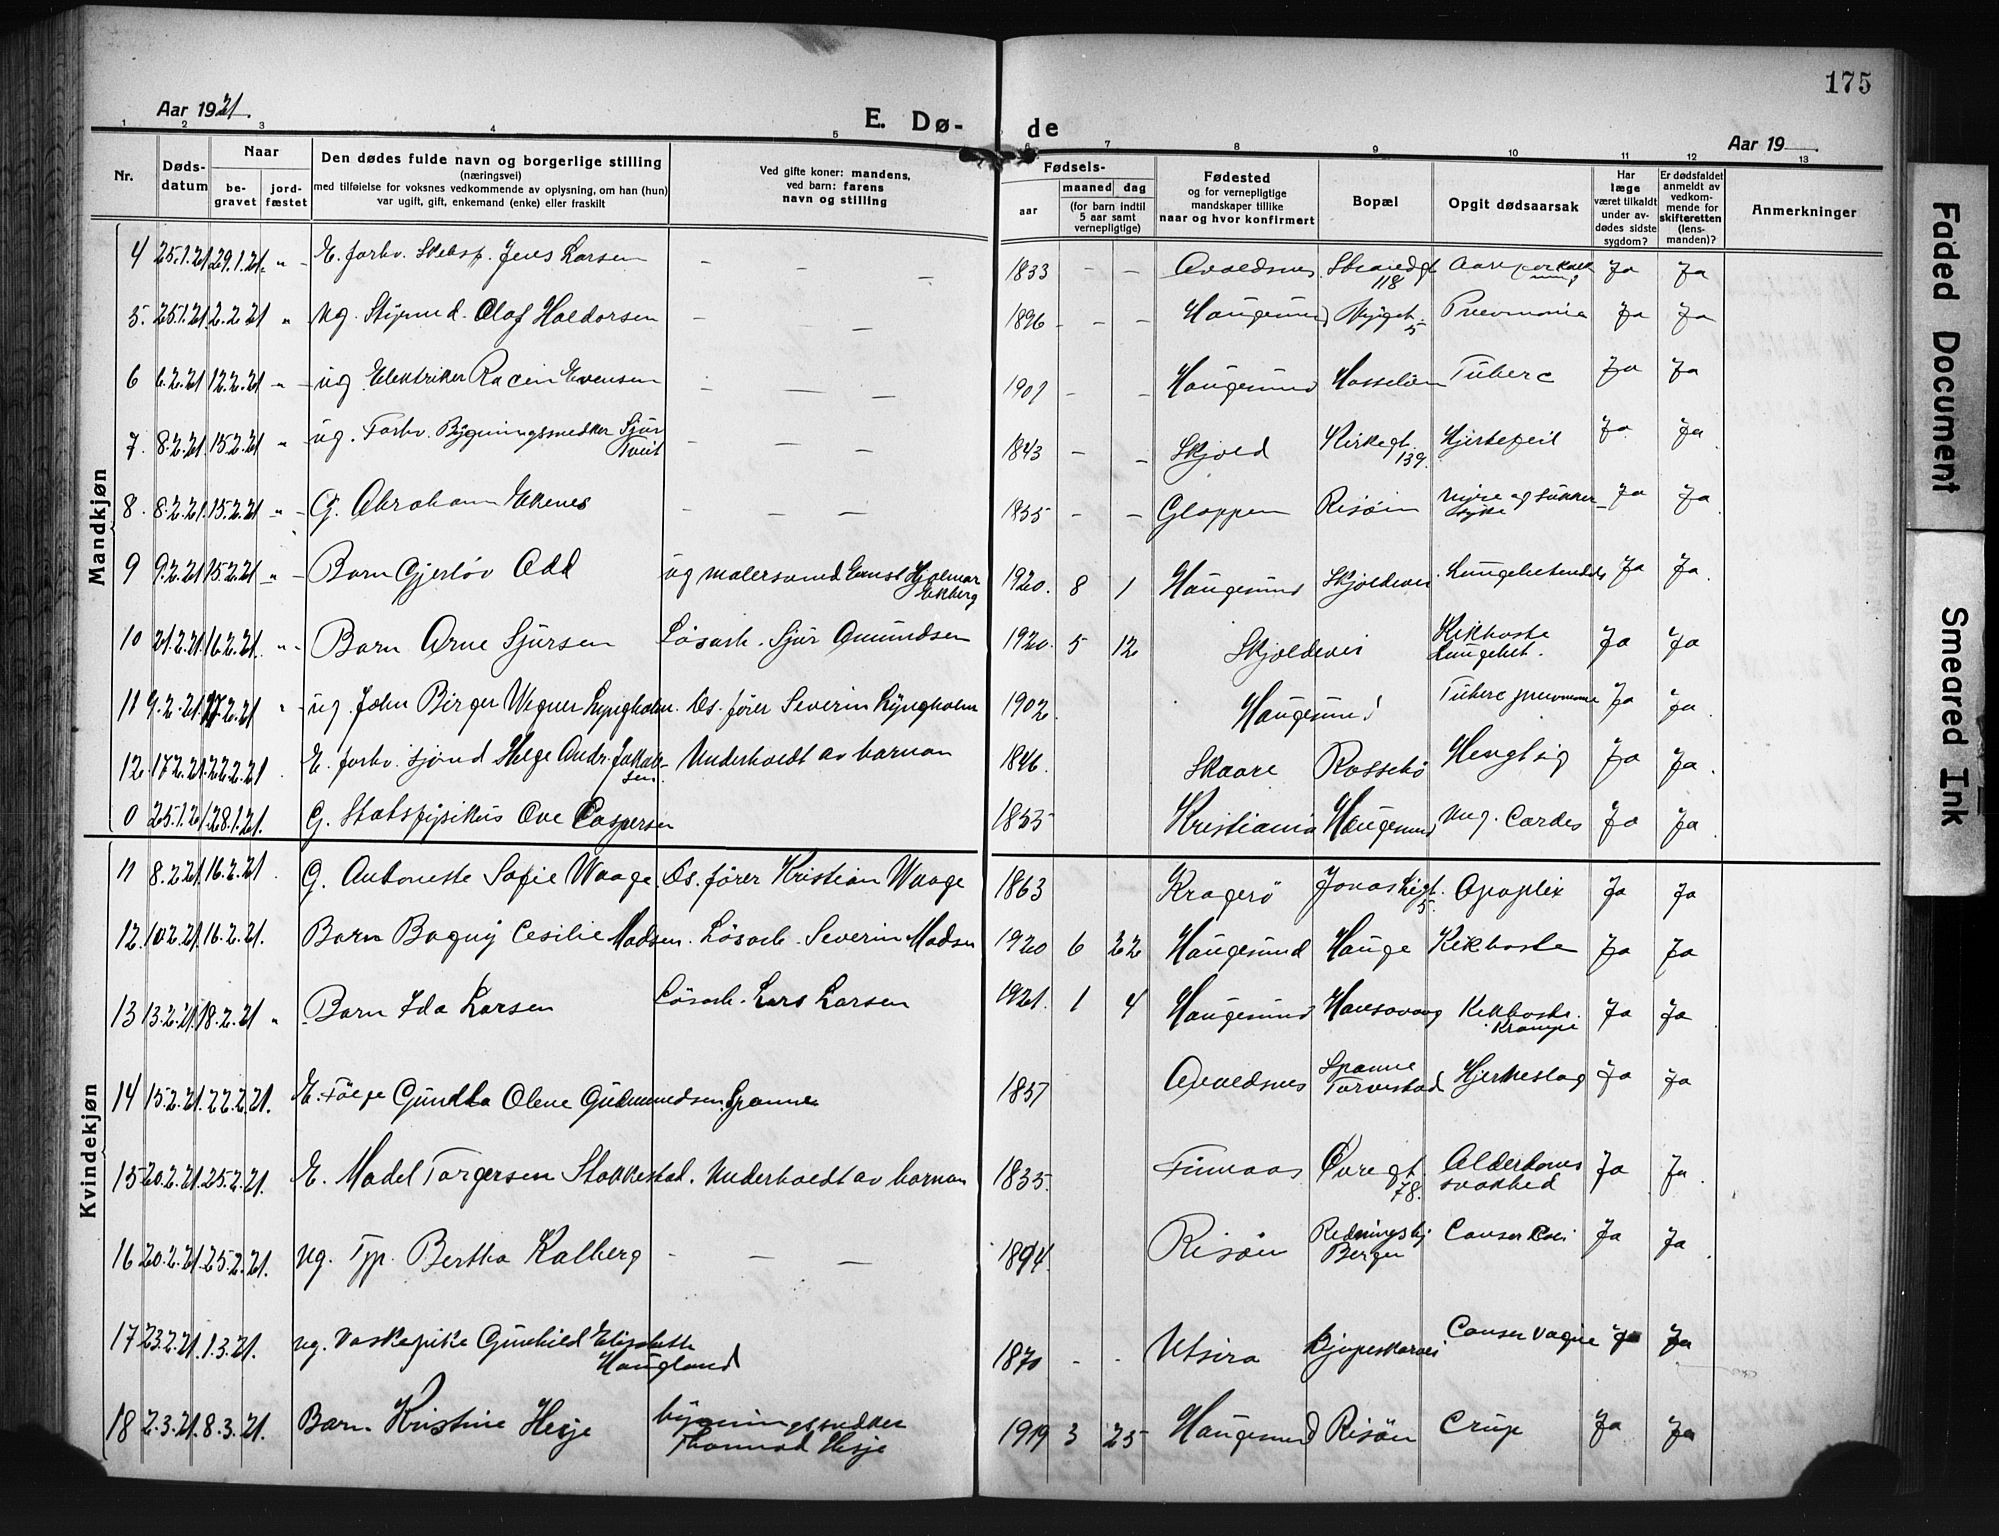 175
Aar 1921.
E. Dø-
de
Aar 19
1 2 3 4 5 6 7 8 9 10 11 12 13
Nr.
Døds-
datum
Naar
be-
gravet
jord-
fæstet
Den dødes fulde navn og borgerlige stilling
(næringsvei)
med tilføielse for voksnes vedkommende av oplysning, om han (hun)
var ugift, gift, enkemand (enke) eller fraskilt
Ved gifte koner: mandens,
ved barn: farens
navn og stilling
Fødsels-
aar
maaned dag
(for barn indtil
5 aar samt
vernepligtige)
Fødested
og for vernepligtige
mandskaper tillike
naar og hvor konfirmert
Bopæl
Opgit dødsaarsak
Har
læge
været tilkaldt
under av-
dødes sidste
sygdom?
Er dødsfaldet
anmeldt av
vedkom-
mende for
skifteretten
(lens-
manden)?
Anmerkninger
Mandkjøn
4 25.1.21 29.1.21. " E. forhv. Jens Larsen - - - 1833 - - Avaldsnes Strandgt 118 Ja Ja
5. 25.1.21 2.2.21 " ug. Styrmd. Olaf Haldorsen - - - 1896 - - - Haugesund 5 Pneumonia Ja Ja
6 6.2.21 12.2.21 " ug Elektriker Evensen - - - 1901 - - Haugesund Hasseløen Tuberc Ja Ja
7. 8.2.21 15.2.21 " ug. Forhv. Bygningssnedker Sjur Tveit - - - 1843 - - Skjold Kirkegt. 139. Hjertefeil Ja Ja
8. 8.2.21. 15.2.21 " G. Abraham Ekenes - - - 1855 - - Gloppen Risøen nyre og sukker- syke Ja Ja
9 9.2.21 15.2.21 " Barn Gjerløv Odd ug malersvend Ernst Hjalmar Ekberg 1920. 8 1 Haugesund Skjoldevei Lungebetendelse Ja Ja.
10 21.2.21 16.2.21. " Barn Arne Sjursen Løsarb. Sjur Amundsen 1920. 5 12 Skjoldevei Kikhoste Lungebet. Ja Ja
11 9.2.21. 17.2.21 " ug. John Birger Wegner Lyngholm. Ds. fører Severin Lyngholm 1902 Haugesund Tuberc pneumonie Ja Ja.
12. 17.2.21. 22.2.21 E. forhv. Helge Andr. Jakobsen Underholdt av barnan 1846. Skaare Rossebø Ja Ja.
0 25.1.21. 28.1.21. G. Statsfysikus Ove Caspersen 1855 Kristiania Haugesund Ja Ja.
Kvindekjøn
11 8.2.21. 16.2.21 G. Antonette Sofie Waage Ds. fører Kristian Waage 1863 Kragerø 5. Apoplexi Ja Ja
12. 10.2.21. 16.2.21. Barn Bagny Cesilie Madsen. Løsarb. Severin Madsen 1920 6 22 Haugesund Hauge Kikhoste Ja Ja
13 13.2.21. 18.2.21 " Barn Ida Larsen Løsarb. Lars Larsen 1921. 1 4 Haugesund Kikhoste. Krampe Ja Ja
14 15.2.21. 22.2.21. E. Gundla Olene Gudmundsen Spanne 1857 Avaldsnes Spanne Torvestad Hjerteslag Ja Ja
15 20.2.21 25.2.21. E. Madel Torgersen Stakkestad. Underholdt av barnan 1835. Finnaas Øvregt. 78. Alderdoms svakhed Ja Ja.
16 20.2.21. 25.2.21. ug. Typ. Bertha Kalberg - - 1894. Risøen Bergen Cancer Ja Ja
17 23.2.21. 1.3.21. ug. Vaskepike Gunhild Elisabeth Haugland 1870 - - Utsira Cancer Ja Ja
18 2.3.21. 8.3.21. Barn Kristine Hesje bygningssnedker Thormod Hesje 1919 3 25 Haugesund Risøen Crup Ja Ja
Faded Document
Smeared Ink